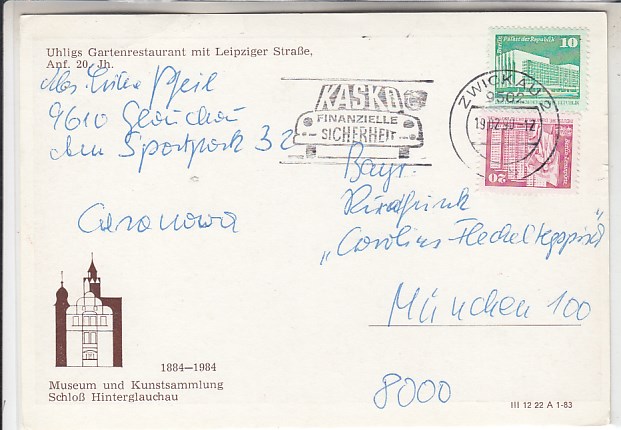 Uhligs Gartenrestaurant mit Leipziger Straße,
Anf. 20. Jh.
Abs. Pfeil
9610 Glauchau
Am Sportpark 32
Casanowa
KASKO
FINANZIELLE
SICHERHEIT
ZWICKAU 2
9502
19.02.90-17
10
Palast der Republik
20
Bayr.
Rundfunk
„Carolins Fleckelteppich“
München 100
8000
1884—1984
Museum und Kunstsammlung
Schloß Hinterglauchau
III 12 22 A 1-83